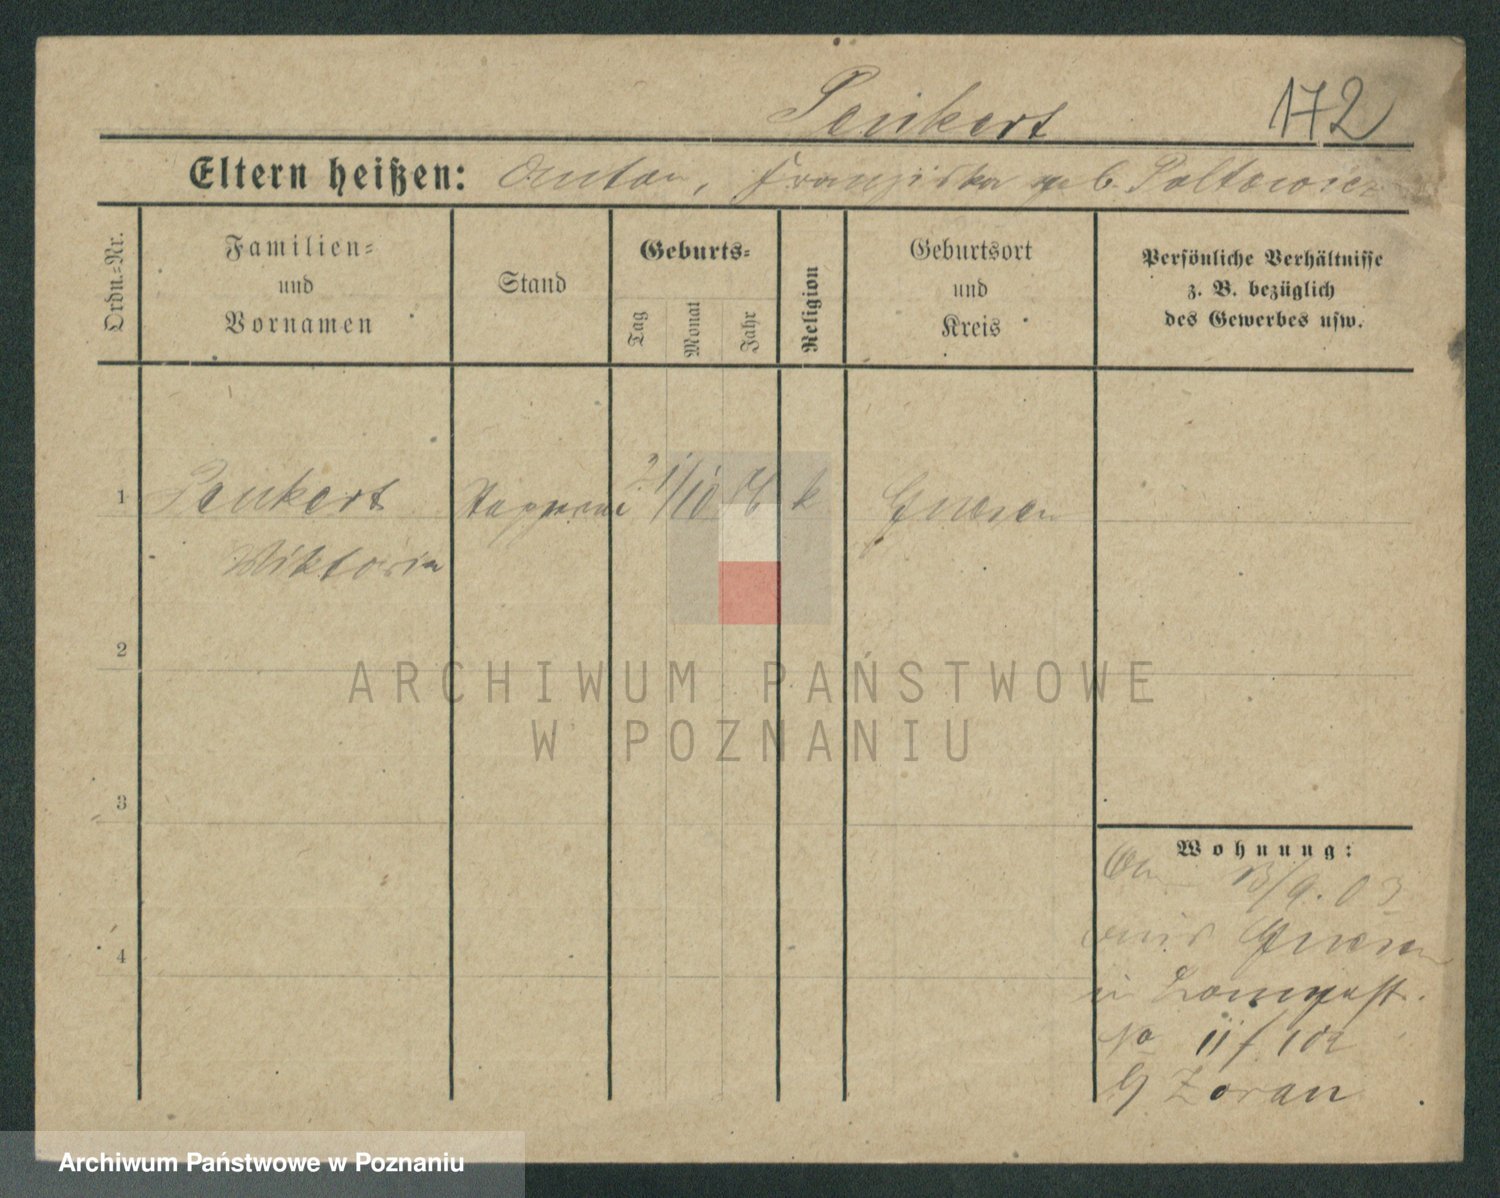 Penkert 172
Eltern heißen: Anton, Franziska geb. Paltowicz
Ordn.=Nr.
Familien=
und
Vornamen
Stand
Geburts=
Tag
Monat
Jahr
Religion
Geburtsort
und
Kreis
Persönliche Verhältnisse
z. B. bezüglich
des Gewerbes usw.
1 Penkert 21/10 k Gnesen
Viktoria
2
3
4
Wohnung:
13/9. 03
aus Gnesen
in
No 11
b/ Zoran
ARCHIWUM PAŃSTWOWE
W POZNANIU
Archiwum Państwowe w Poznaniu